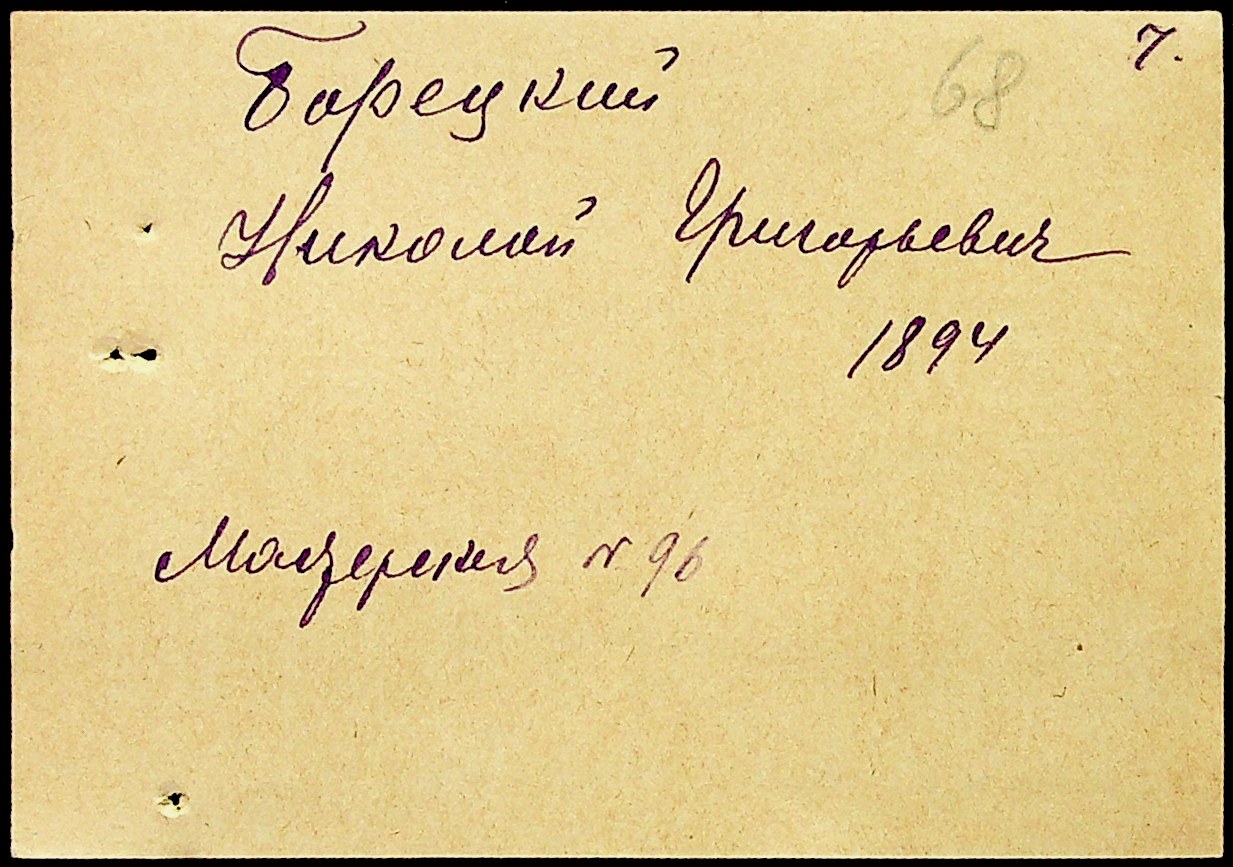 7.
68
Борецкий
Николай Григорьевич
1894
Мастерская № 96